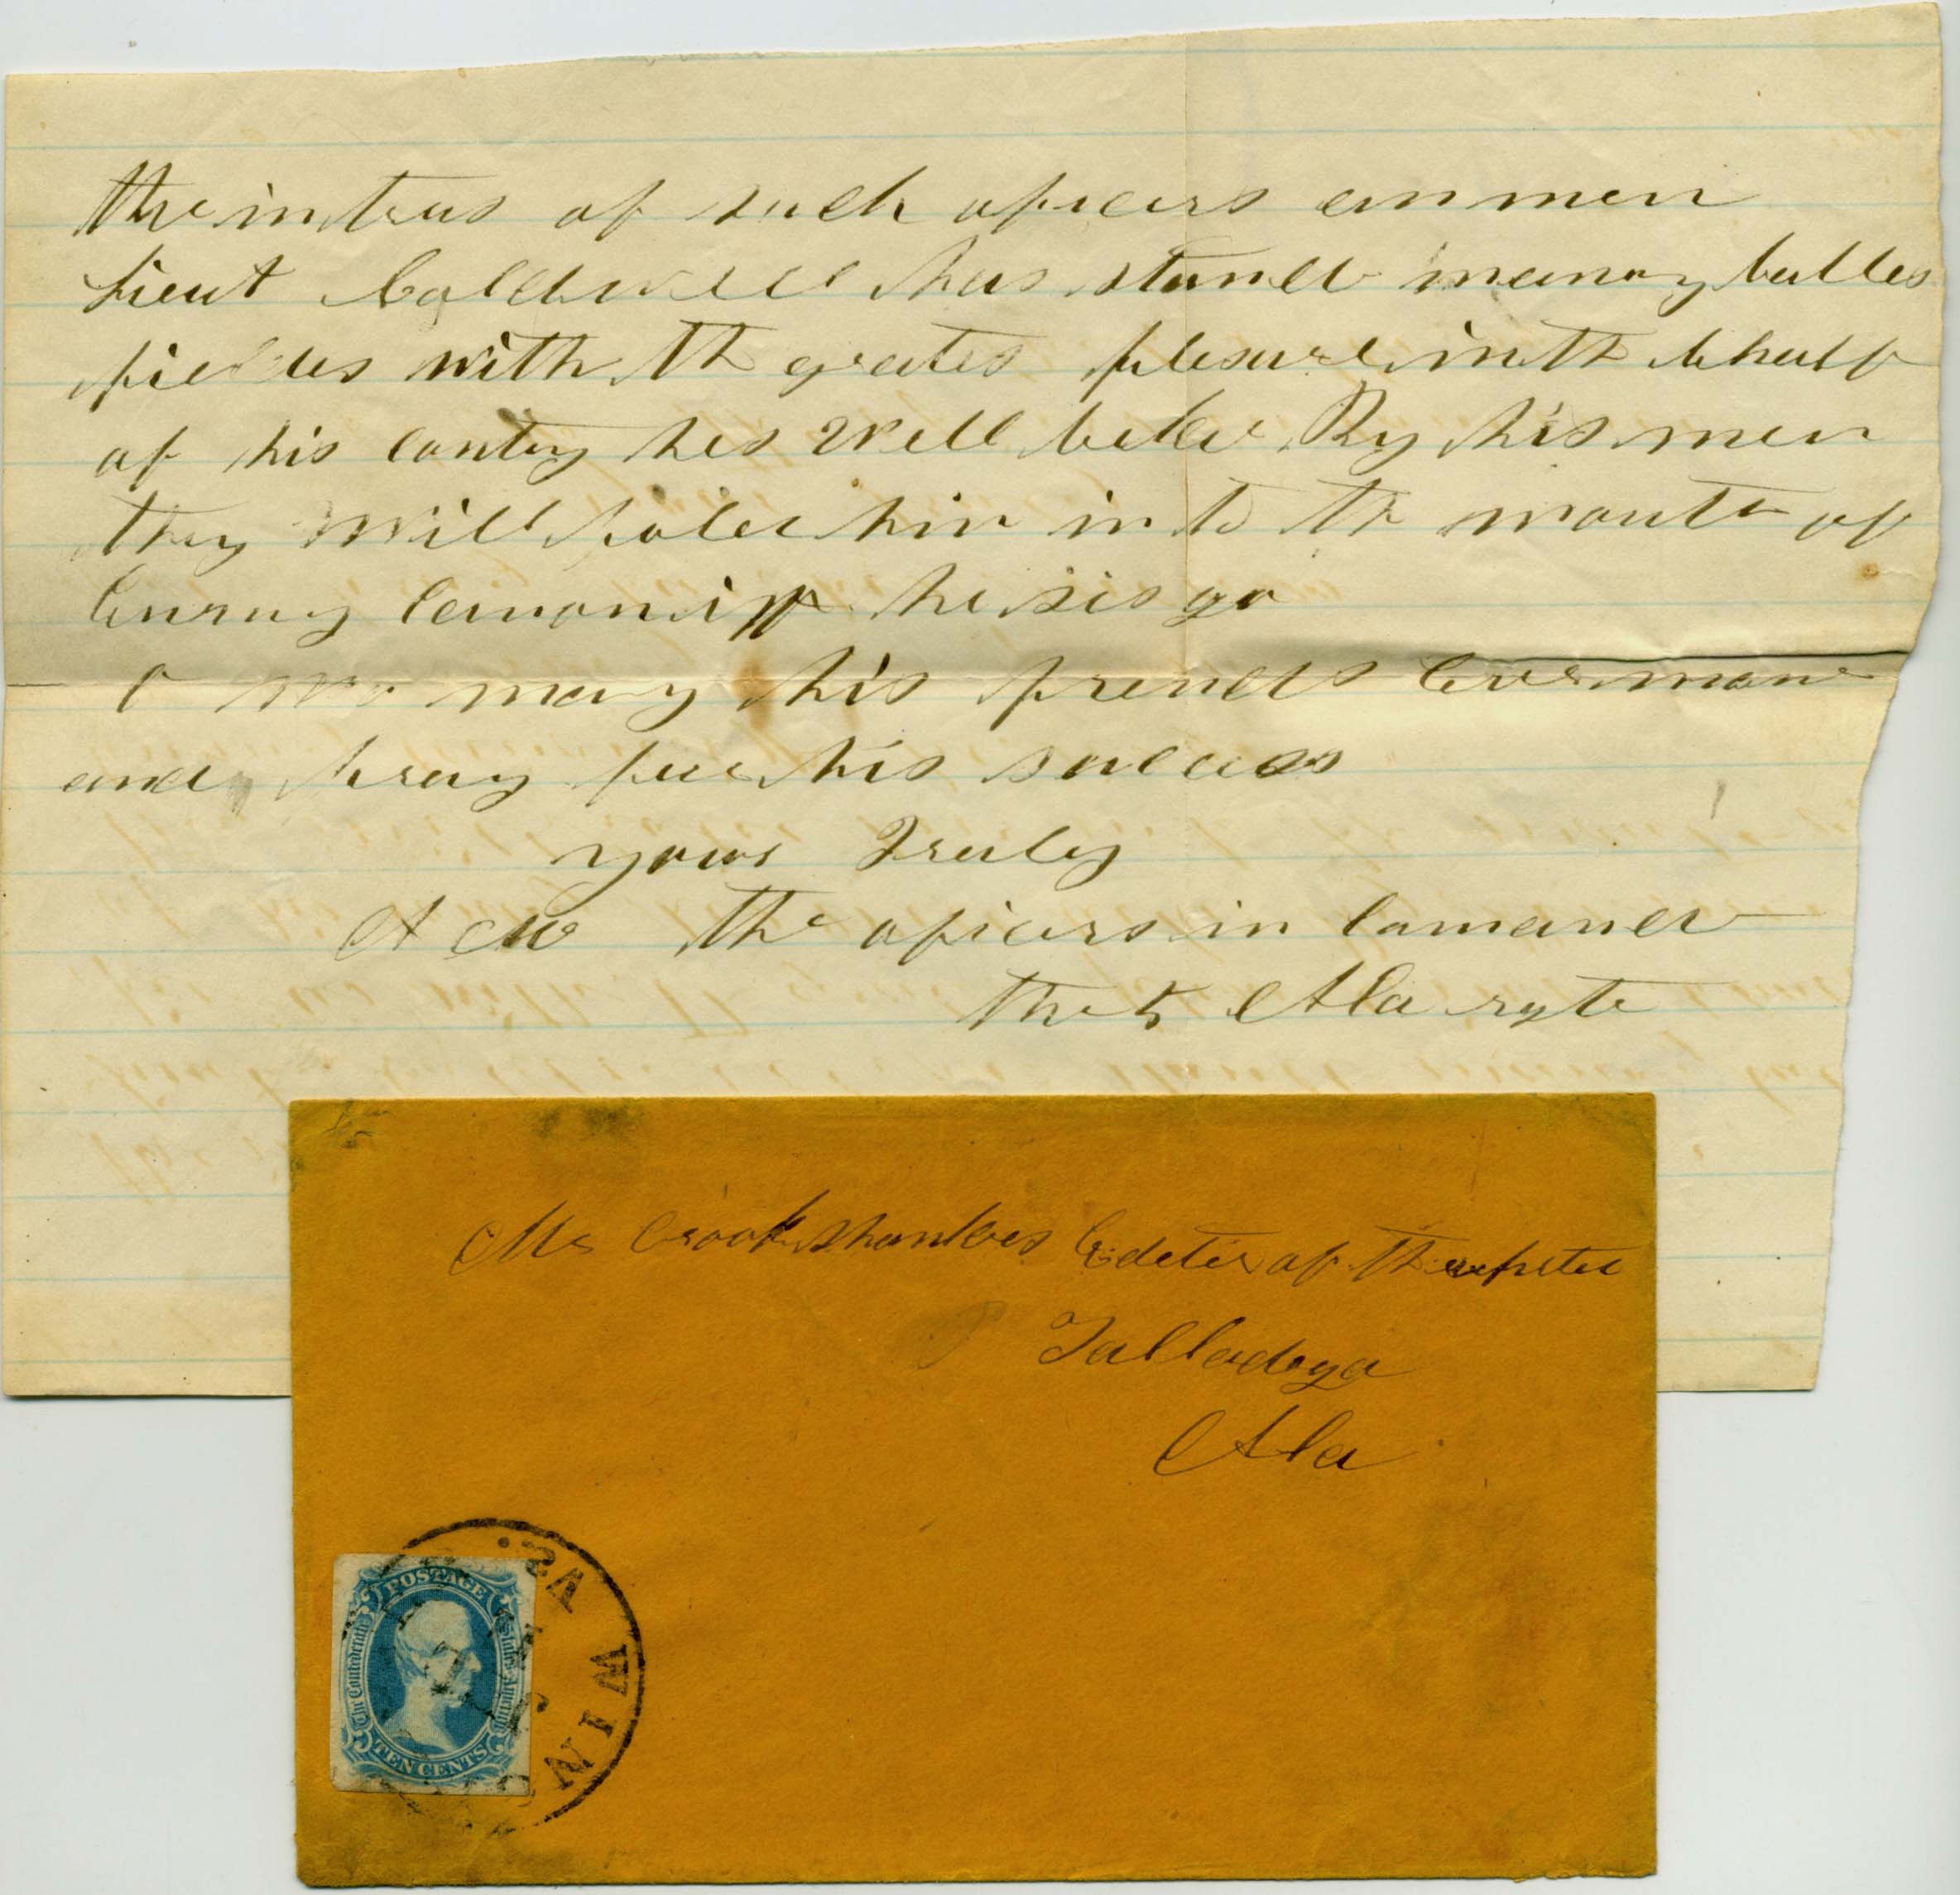 the intrus of such oficers an men
Lieut Caldwell has stand many battles
fieldes with th grates plesure in th behalf
of his contry hes Well beloved By his men
they Will foler him in to th mouth of
Enrmy Cannon if he ses go
O may his frends Ever man
and pray for his success
yours Truly
the oficers in Comand
the 5 Ala rgte
Mr Crookshankes Editer of th reporter
Talladega
Ala
POSTAGE
The Confederate States America
TEN CENTS
WING Va.